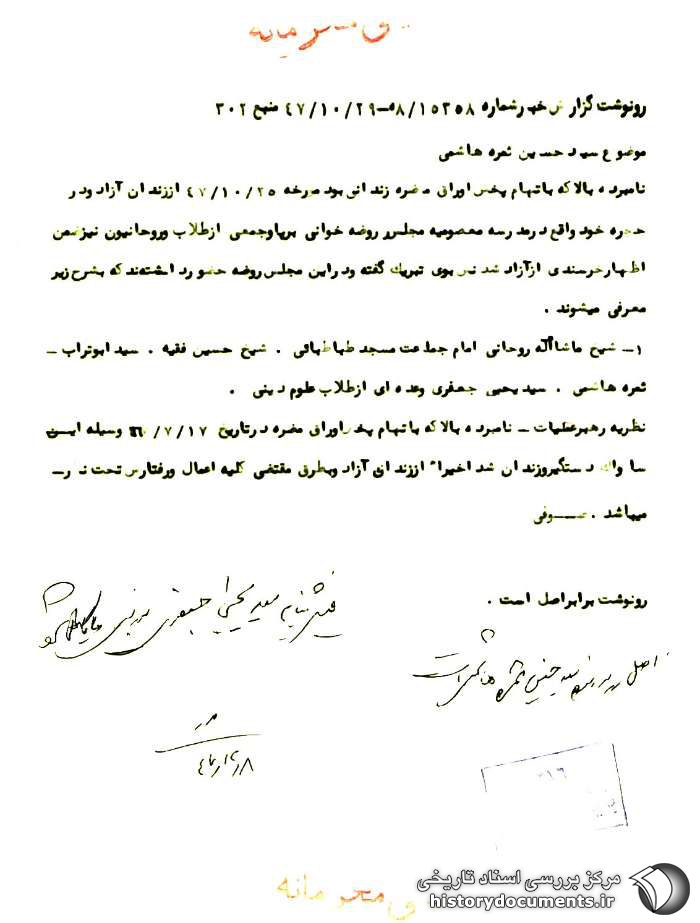 محرمانه
رونوشت گزارش خبر شماره ۱۵۳۵۸/ه۸-۴۷/۱۰/۲۹ منبع ۳۰۲
موضوع سید حسین ثمره هاشمی
نامبرده بالا که باتهام پخش اوراق مضره زندانی بود مورخه ۴۷/۱۰/۲۵ اززندان آزاد ودر
حجره خود واقع درمدرسه معصومیه مجلس روضه خوانی برپا وجمعی ازطلاب وروحانیون نیزضمن
اظهارخرسندی ازآزاد شدنش بوی تبریک گفته ودراین مجلس روضه حضور داشتند که بشرح زیر
معرفی میشوند .
۱- شیخ ماشااله روحانی امام جماعت مسجد طباطبائی . شیخ حسین فقیه . سید ابوتراب -
ثمره هاشمی . سید یحیی جعفری وعده ای ازطلاب علوم دینی .
نظریه رهبرعملیات - نامبرده بالا که باتهام پخش اوراق مضره درتاریخ /۷/۱۷ وسیله این
ساواک دستگیروزندان شد اخیرا" اززندان آزاد وبطرق مقتضی کلیه اعمال ورفتارش تحت نظر-
میباشد . صوفی
رونوشت برابراصل است .
سید یحیی جعفری
اصل در پرونده سید حسین ثمره هاشمی است
۳۱۶
محرمانه
مرکز بررسی اسناد تاریخی
historydocuments.ir